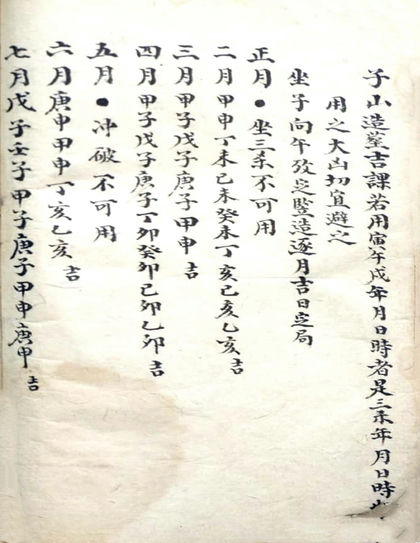 子山造塟吉課若用寅午戌年月日時者是三杀年月日時此
用之大凶切宜避之
坐子向午攷定豎造逐月吉日定局
正月●坐三杀不可用
二月甲申丁未己未癸未丁亥己亥乙亥吉
三月甲子戊子庚子甲申吉
四月甲子戊子庚子丁卯癸卯己卯乙卯吉
五月●冲破不可用
六月庚申甲申丁亥乙亥吉
七月戊子壬子甲子庚子甲申庚申吉